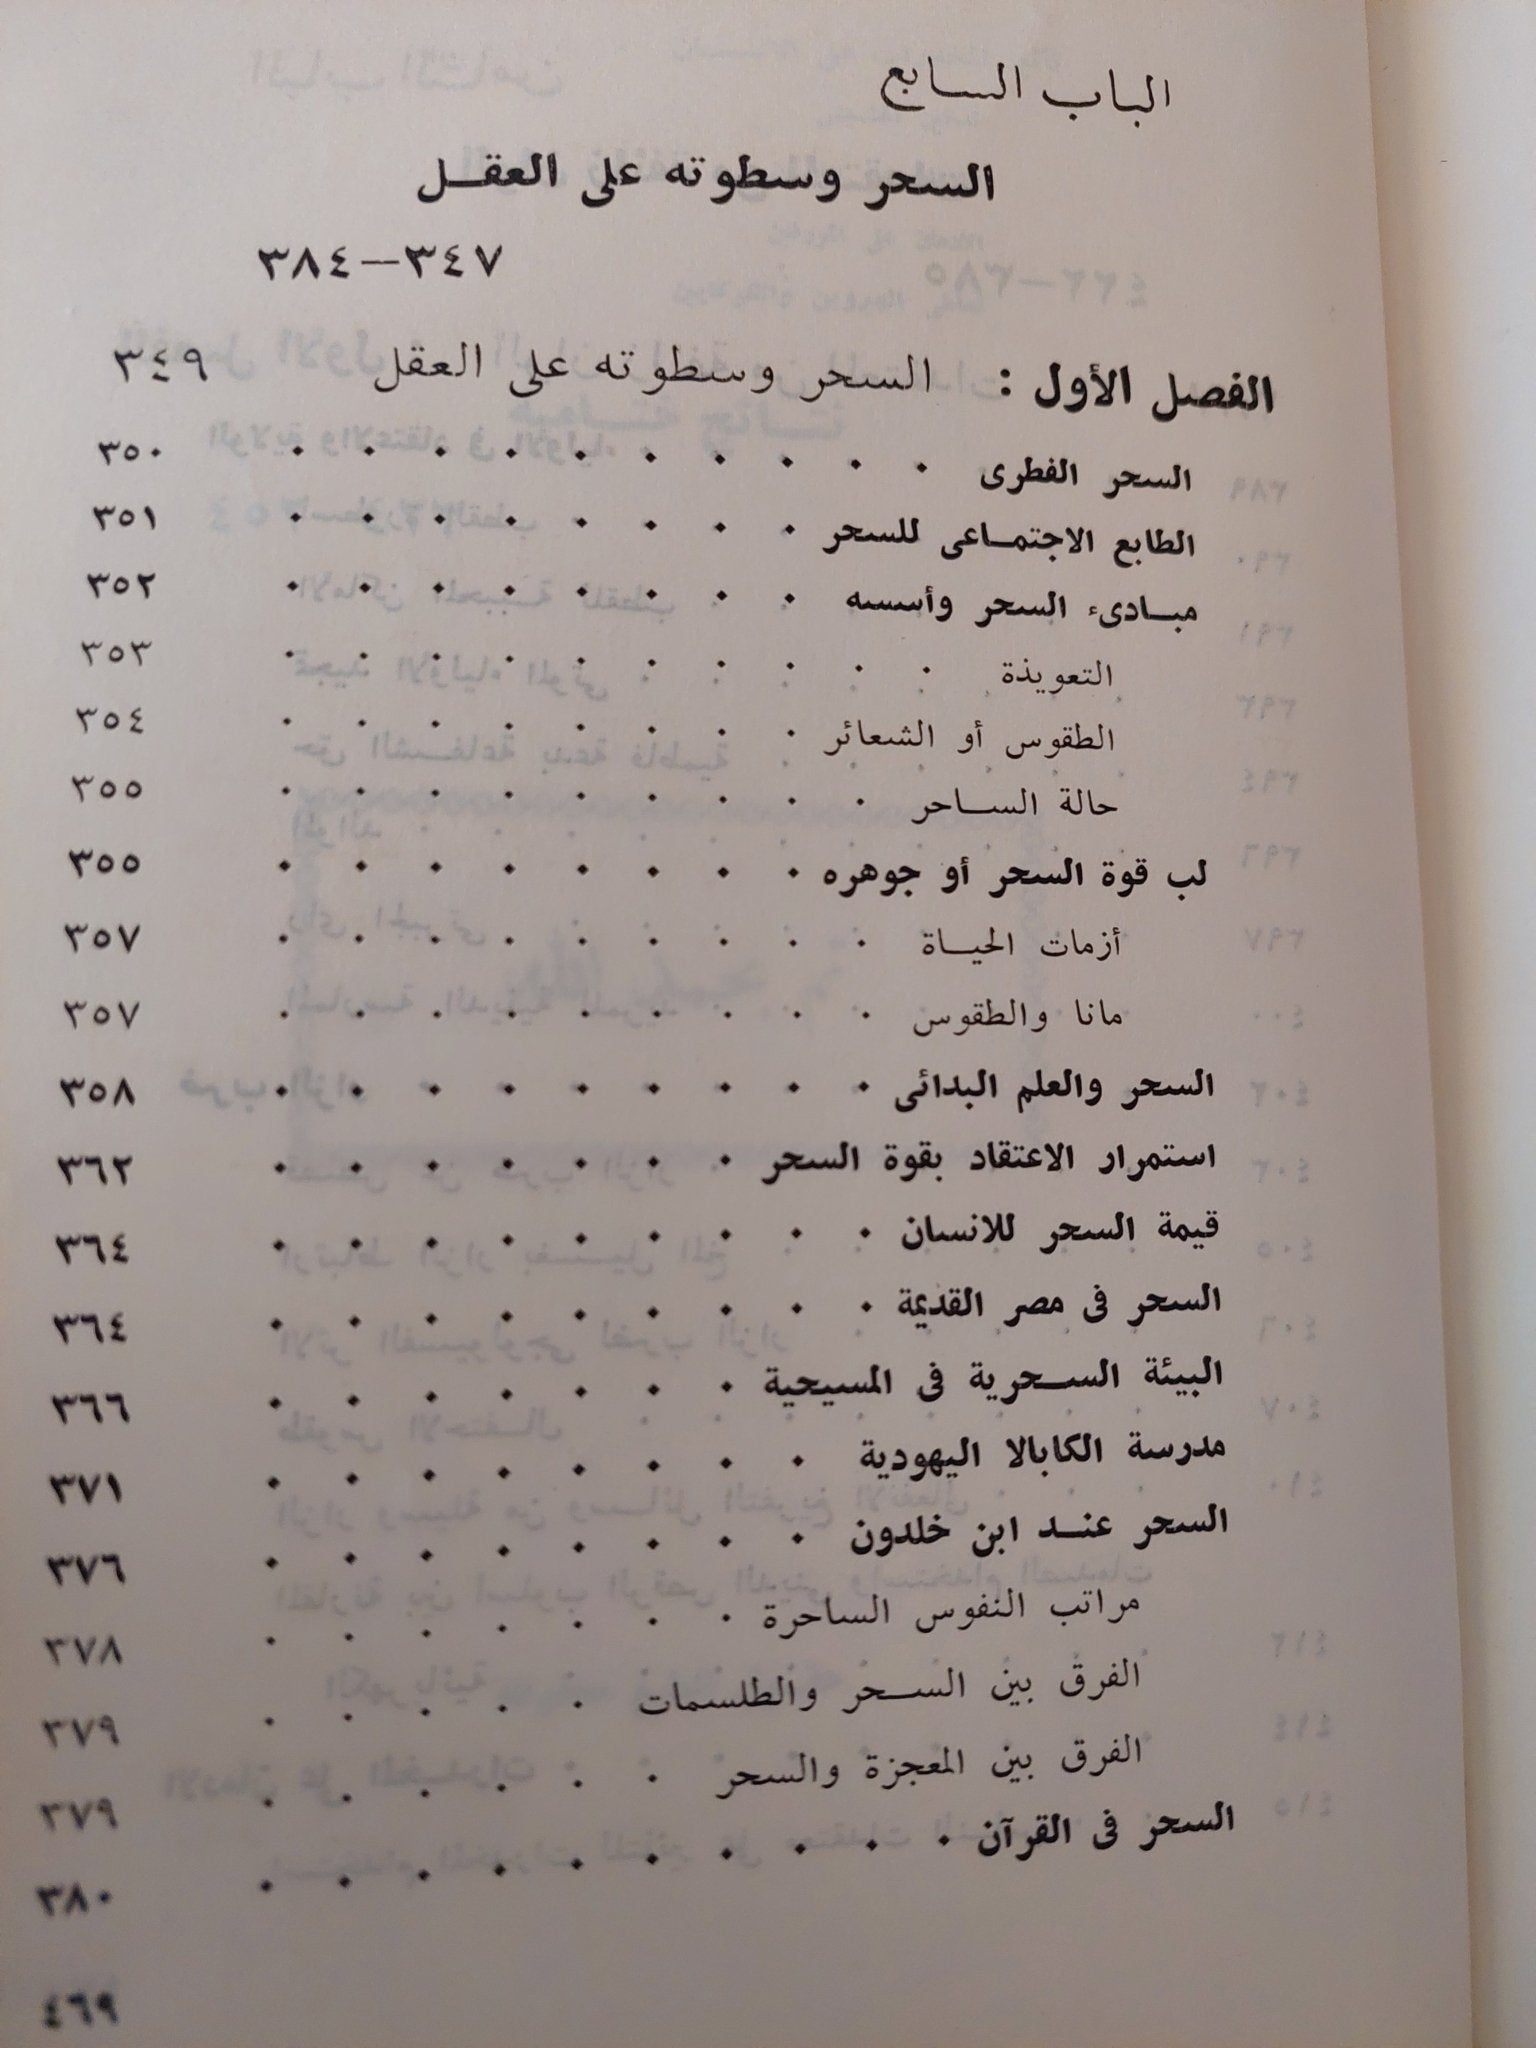 الباب السابع
السحر وسطوته على العقل
٣٤٧–٣٨٤
الفصل الأول : السحر وسطوته على العقل ٣٤٩
السحر الفطرى . . . . . . . . . . ٣٥٠
الطابع الاجتماعى للسحر . . . . . . . . ٣٥١
مبادىء السحر وأسسه . . . . . . . . ٣٥٢
التعويذة . . . . . . . . . . ٣٥٣
الطقوس أو الشعائر . . . . . . . . ٣٥٤
حالة الساحر . . . . . . . . . ٣٥٥
لب قوة السحر أو جوهره . . . . . . . . ٣٥٥
أزمات الحياة . . . . . . . . . ٣٥٧
مانا والطقوس . . . . . . . . . ٣٥٧
السحر والعلم البدائى . . . . . . . . . ٣٥٨
استمرار الاعتقاد بقوة السحر . . . . . . . ٣٦٢
قيمة السحر للانسان . . . . . . . . . ٣٦٤
السحر فى مصر القديمة . . . . . . . . . ٣٦٤
البيئة السحرية فى المسيحية . . . . . . . ٣٦٦
مدرسة الكابالا اليهودية . . . . . . . . ٣٧١
السحر عند ابن خلدون . . . . . . . . ٣٧٦
مراتب النفوس الساحرة . . . . . . . ٣٧٨
الفرق بين السحر والطلسمات . . . . . ٣٧٩
الفرق بين المعجزة والسحر . . . . . . ٣٧٩
السحر فى القرآن . . . . . . . . . . ٣٨٠
٤٦٩